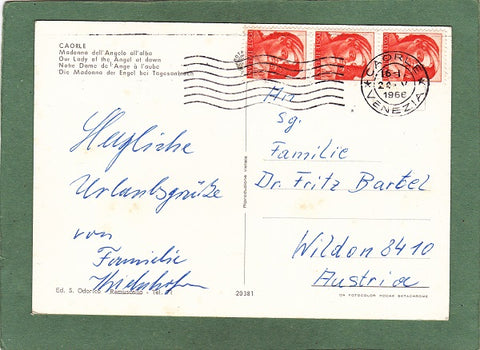 CAORLE
Madonna dell'Angelo all'alba
Our Lady of the Angel at down
Notre Dame de l'Ange à l'aube
Die Madonna der Engel bei Tagesanbruch
CAORLE
16-1
1966
VENEZIA
An
Sg.
Familie
Dr. Fritz Bartel
Wildon 8410
Austria
Herzliche
Urlaubsgrüße
von
Familie
Ed. S. Odorico
20381
DA FOTOCOLOR KODAK EKTACHROME
Riproduzione vietata